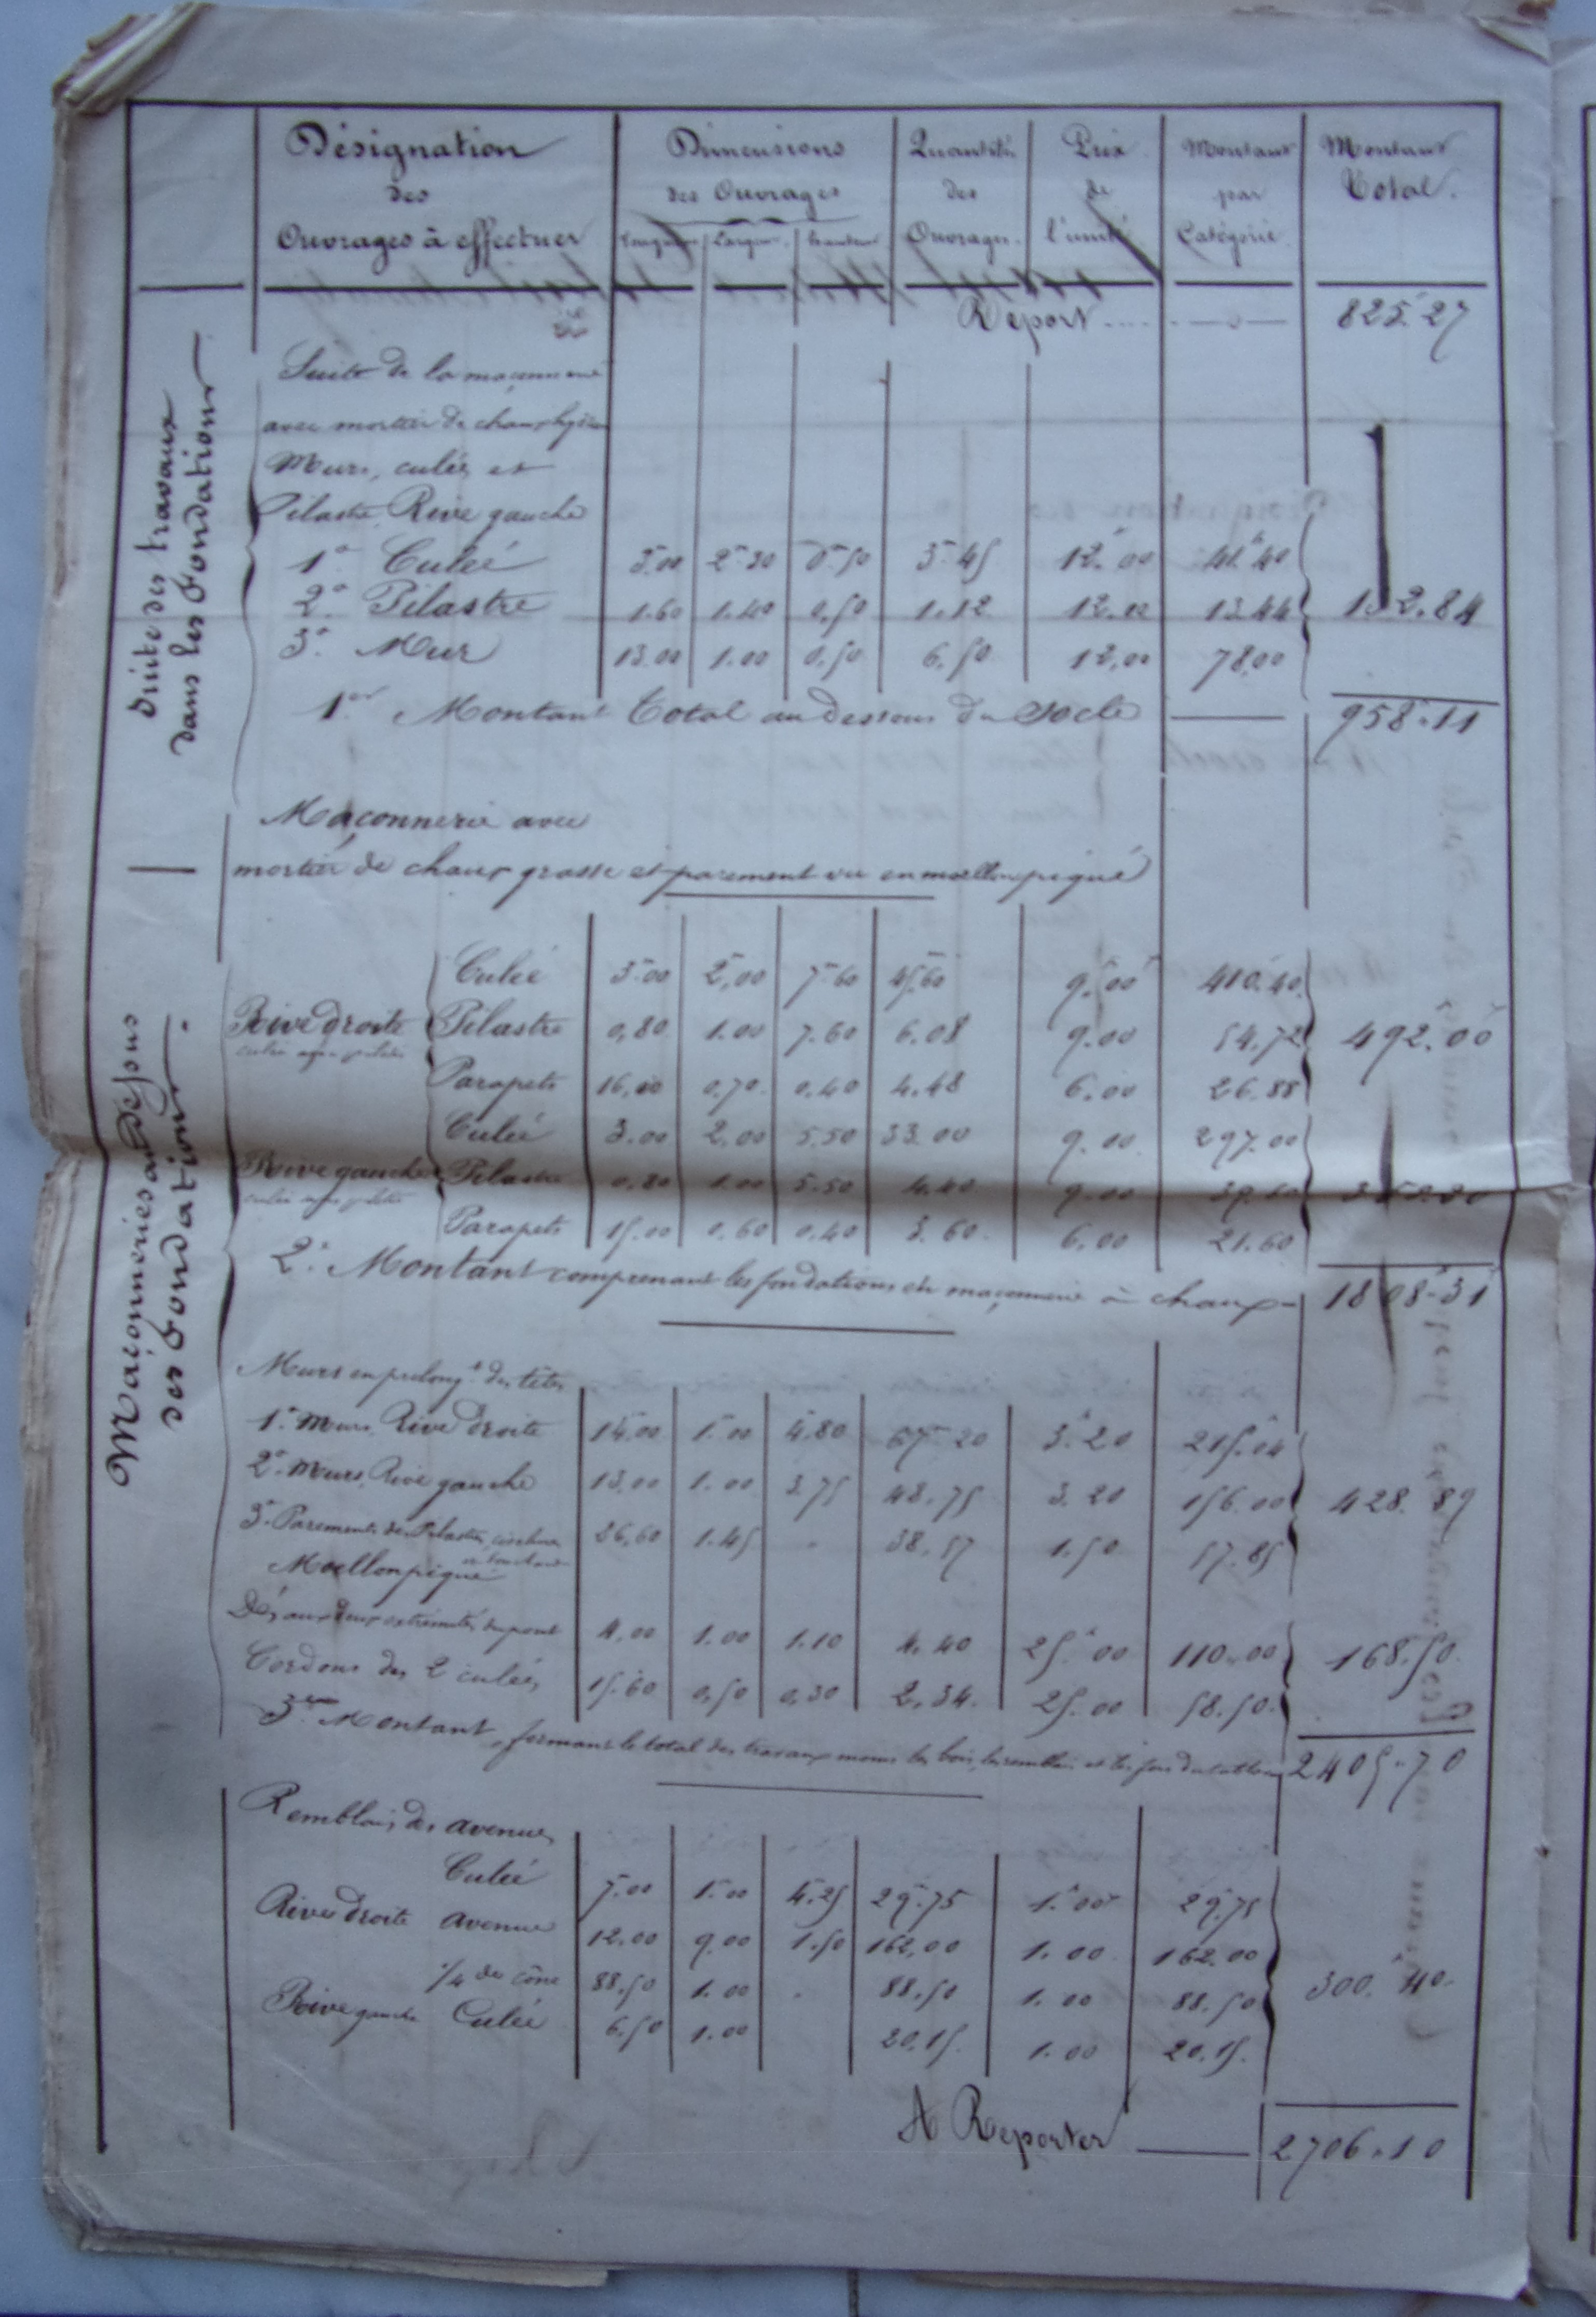 Désignation
des
Ouvrages à effectuer
Dimensions
des Ouvrages
Longueur Largeur hauteur
Quantités
des
Ouvrages.
Prix
de
l'unité
Montant
par
Catégorie.
Montant
Total.
Report 825.27
Suite des travaux
dans les fondations
Suite de la maçonnerie
avec mortier de chaux
Murs, culée, et
Pilastre, Rive gauche
1° Culée 3.00 2.30 0.50 3.45 12.00 41.40
2° Pilastre 1.60 1.40 0.50 1.12 12.00 13.44 132.84
3° Mur 13.00 1.00 0.50 6.50 12.00 78.00
1er Montant Total au dessous du Socle 958.11
Maçonneries au dessus
des fondations.
Maçonnerie avec
mortier de chaux grasse et parement vu en moellon piqué
Culée 3.00 2,00 7.60 45.60 9.00 410.40
Rive droite Pilastre 0,80 1.00 7.60 6.08 9.00 54.72 492.00
Parapets 16,00 0.70 0.40 4.48 6.00 26.88
Culée 3.00 2.00 5.50 33.00 9.00 297.00
Rive gauche Pilastre 0.80 1.00 5.50 4.40 9.00
Parapets 15.00 0.60 0.40 3.60 6.00 21.60
2e Montant comprenant les fondations et maçonnerie à chaux 1808.31
Murs en prolongt des têtes
1° Murs, Rive droite 14.00 1.00 4.80 67.20 3.20 215.04
2° Murs, Rive gauche 13.00 1.00 3.75 48.75 3.20 156.00 428.89
3° Parements des Pilastres, 26,60 1.45 38.57 1.50 57.85
Moellon piqué
Dés aux deux extrémités du pont 4.00 1.00 1.10 4.40 25.00 110.00 168.50
Cordons des 2 culées 15.60 0,50 0,30 2,34 25.00 58.50
3e Montant, formant le total des travaux moins les bois, les remblais et les 2405.70
Remblais des avenues
Culée 7.00 1.00 4.25 29.75 1.00 29.75
Rive droite avenue 12.00 9.00 1.50 162,00 1.00 162.00
1/4 de cône 88.50 1.00 88.50 1.00 88.50 300.40
Rive gauche Culée 6.50 1.00 20.15 1.00 20.15
A Reporter 2706.10